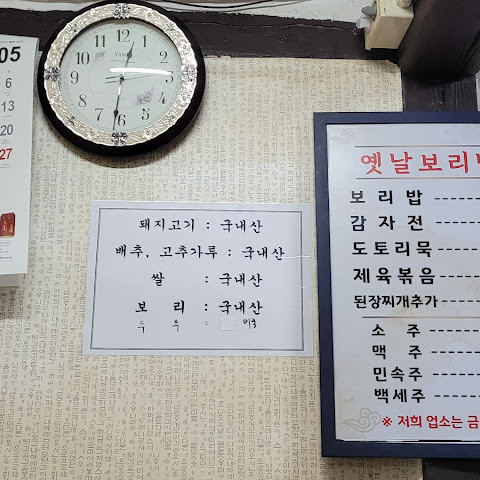 05
6
13
20
27
12
1
2
3
4
5
6
7
8
9
10
11
돼지고기 : 국내산
배추, 고추가루 : 국내산
쌀 : 국내산
보 리 : 국내산
두 부 : 미국
옛날보리
보리밥
감자전
도토리묵
제육볶음
된장찌개추가
소 주
맥 주
민속주
백세주
※ 저희 업소는 금